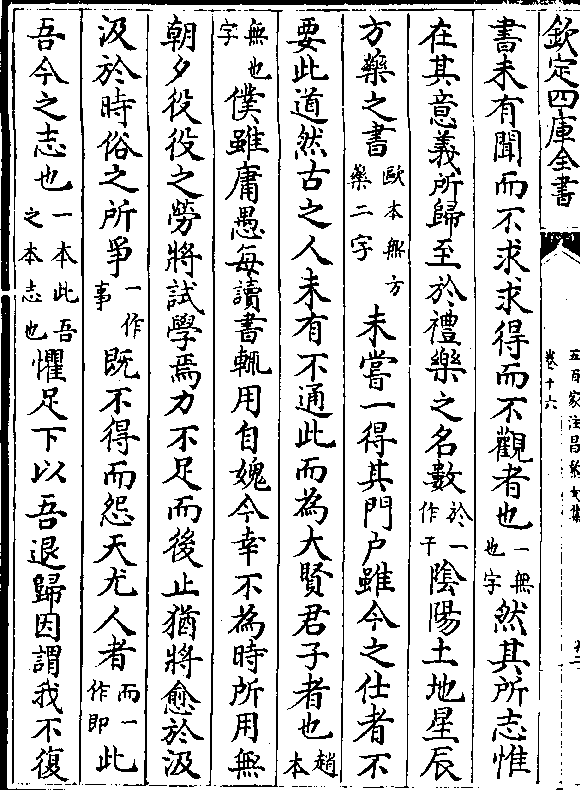 欽定四庫全書
五百家注昌黎文集
卷十六
書未有聞而不求求得而不觀者也一無也字然其所志惟
在其意義所歸至於禮樂之名數於一作干陰陽土地星辰
方藥之書歐本無方藥二字未嘗一得其門户雖今之仕者不
要此道然古之人未有不通此而為大賢君子者也趙本
無也字僕雖庸愚每讀書輒用自媿今幸不為時所用無
朝夕役役之勞將試學焉力不足而後止猶將愈於汲
汲於時俗之所爭一作事既不得而怨天尤人者而一作即此
吾今之志也一本此吾之本志也懼足下以吾退歸因謂我不復